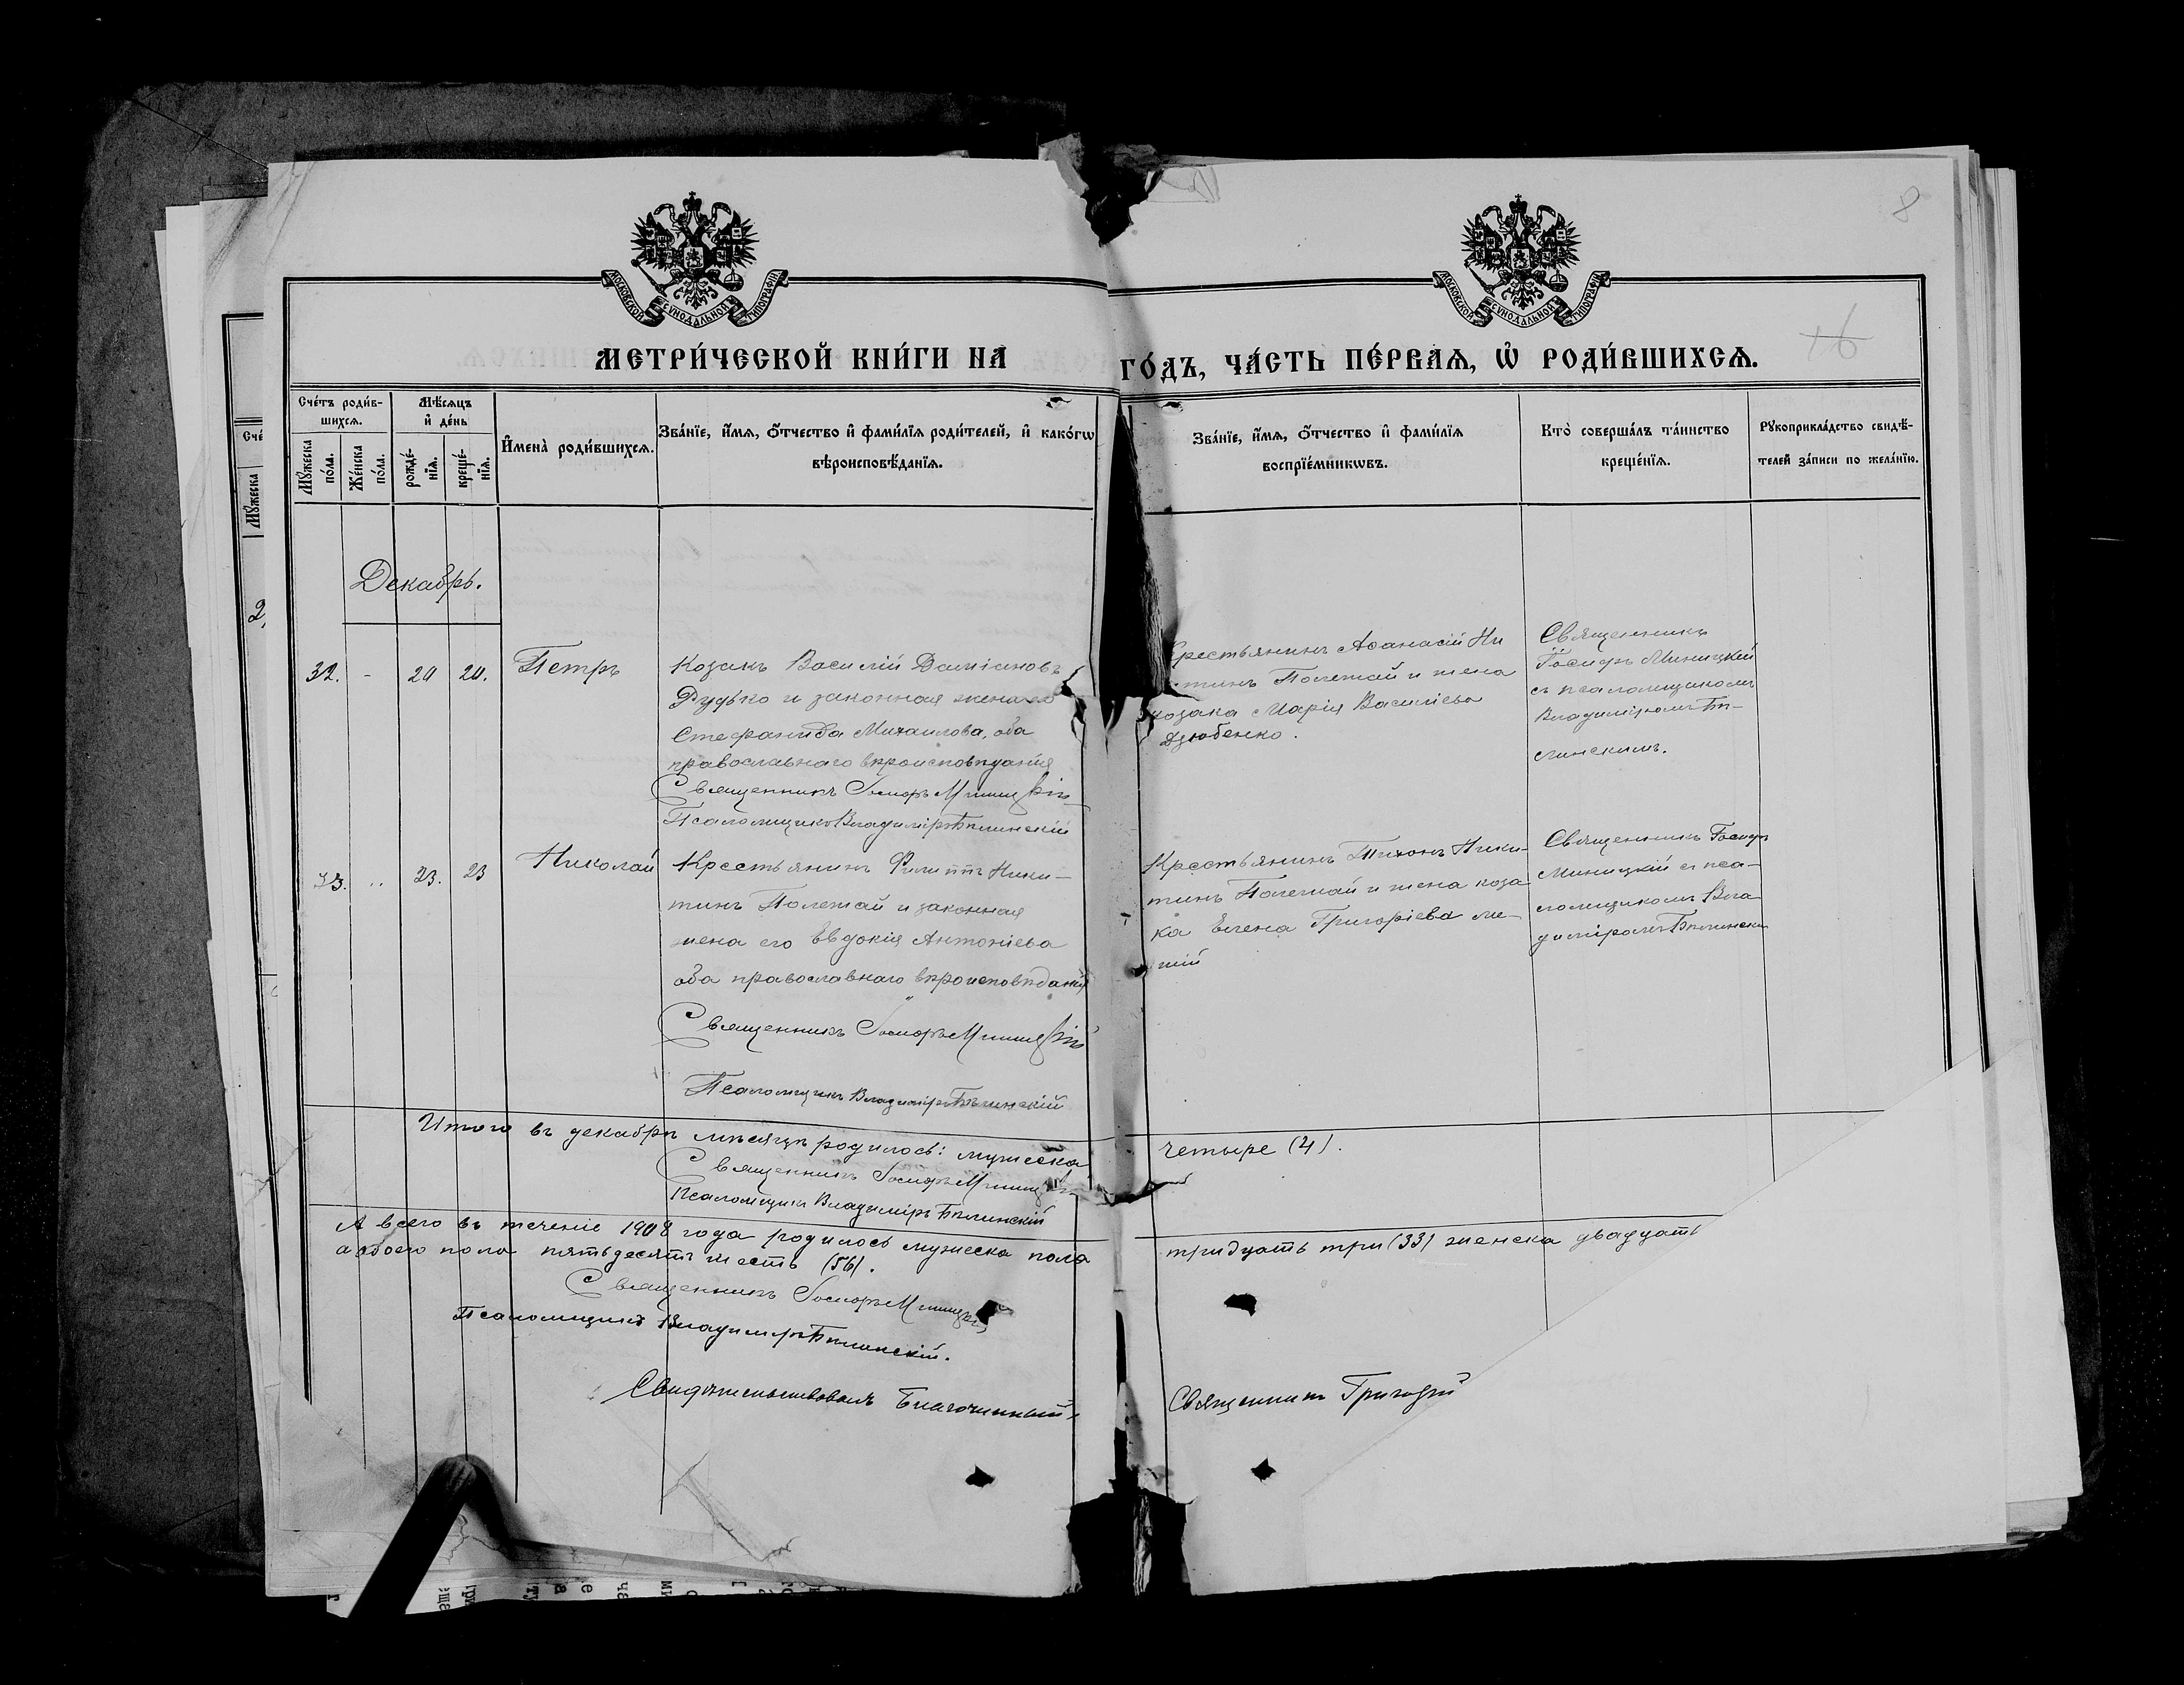 8
МОСКОВСКОЙ СѴНОДАЛЬНОЙ ТИПОГРАФІИ
МОСКОВСКОЙ СѴНОДАЛЬНОЙ ТИПОГРАФІИ
16
МЕТРИ́ЧЕСКОЙ КНИ́ГИ НА ГО́ДЪ, ЧА́СТЬ ПЕ́РВАѦ, Ѡ҆ РОДИ́ВШИХСѦ.
Сче́тъ роди́в-
шихсѧ.
Мꙋ́жеска по́ла.
Же́нска по́ла.
Мѣ́сѧцъ и҆ де́нь
рожде́-нїѧ.
креще́-нїѧ.
И҆мена̀ роди́вшихсѧ.
Зва́нїе, и҆́мѧ, ѻ҆́тчество и҆ фами́лїѧ роди́телей, и҆ како́гѡ
вѣроисповѣ́данїѧ.
Зва́нїе, и҆́мѧ, ѻ҆́тчество и҆ фами́лїѧ
воспрїе́мникѡвъ.
Кто̀ соверша́лъ та́инство
креще́нїѧ.
Рꙋкоприкла́дство свидѣ́-
телей за́писи по жела́нїю.
Сче
Мꙋжеска
2,
Декабрь.
32. - 20 20. Петръ
Козакъ Василій Даміановъ
Рудько и законная жена его
Стефанида Михаилова, оба
православнаго вѣроисповѣданія
Священникъ Іосифъ Миницкій
Псаломщикъ Владиміръ Бѣлинскій
Крестьянинъ Афанасій Ни
тинъ Полежай и жена
козака Марія Василіева
Дзюбенко.
Священникъ
Іосифъ Миницкій
съ псаломщикомъ
Владиміромъ Бѣ-
линскимъ.
33. .. 23. 23 Николай
Крестьянинъ Филиппъ Ники-
тинъ Полежай и законная
жена его Евдокія Антоніева
оба православнаго вѣроисповѣданія
Священникъ Іосифъ Миницкій
Псаломщикъ Владиміръ Бѣлинскій
Крестьянинъ Тихонъ Ники-
тинъ Полежай и жена коза
ка Елена Григоріева
Священникъ Іосифъ
Миницкій съ пса-
ломщикомъ Вла
диміромъ Бѣлински
Итого въ декабрѣ мѣсяцѣ родилось: мужеска четыре (4).
Священникъ Іосифъ Миницкій
Псаломщикъ Владиміръ Бѣлинскій
А всего въ теченіе 1908 года родилось мужеска пола тридцать три (33) женска двадцать
а обоего пола пятьдесятъ шесть (56).
Священникъ Іосифъ Миницкій
Псаломщикъ Владиміръ Бѣлинскій.
Свидѣтельствовалъ Благочинный, Священникъ Григорій